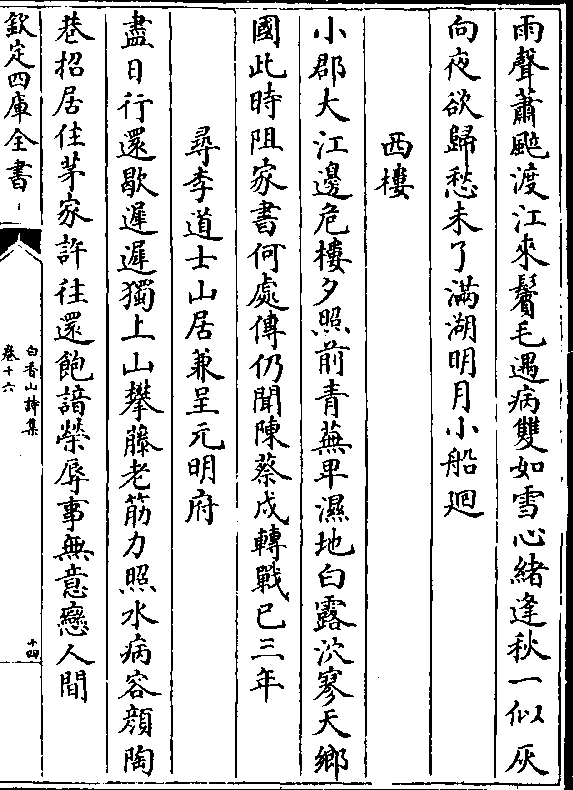 雨聲蕭颭渡江來鬢毛遇病雙如雪心緒逢秋一似灰
向夜欲歸愁未了滿湖明月小船廻
西樓
小郡大江邊危樓夕照前青蕪卑濕地白露泬寥天鄉
國此時阻家書何處傳仍聞陳蔡戍轉戰已三年
尋李道士山居兼呈元明府
盡日行還歇遲遲獨上山攀藤老筋力照水病容顔陶
巷招居住茅家許往還飽諳榮辱事無意戀人間
欽定四庫全書
白香山詩集
卷十六
十四